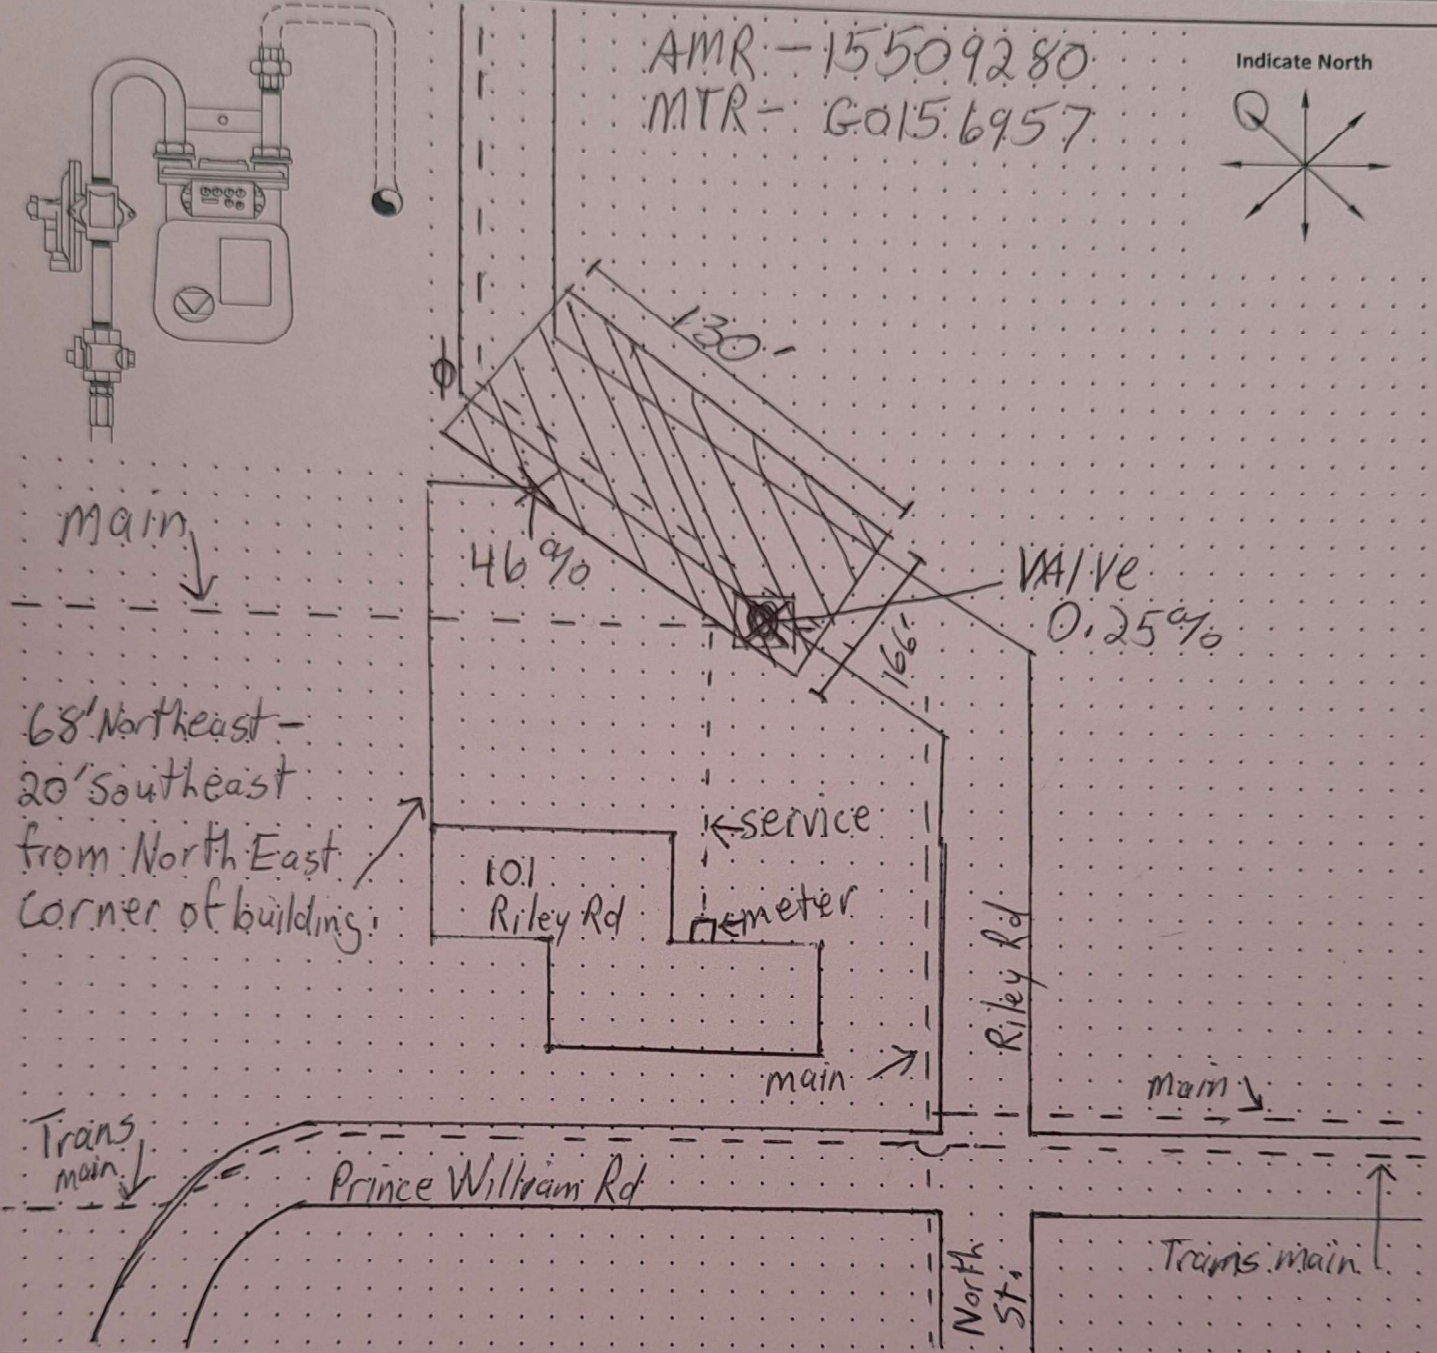 AMR - 15509280
MTR - G0156957
Indicate North
130'
main
46%
VAlVe
0.25%
166'
68' Northeast -
20' Southeast
from North East
corner of building.
service
101
Riley Rd
meter
Riley Rd
main
main
Trans
main
Prince William Rd
North
St.
Trans main